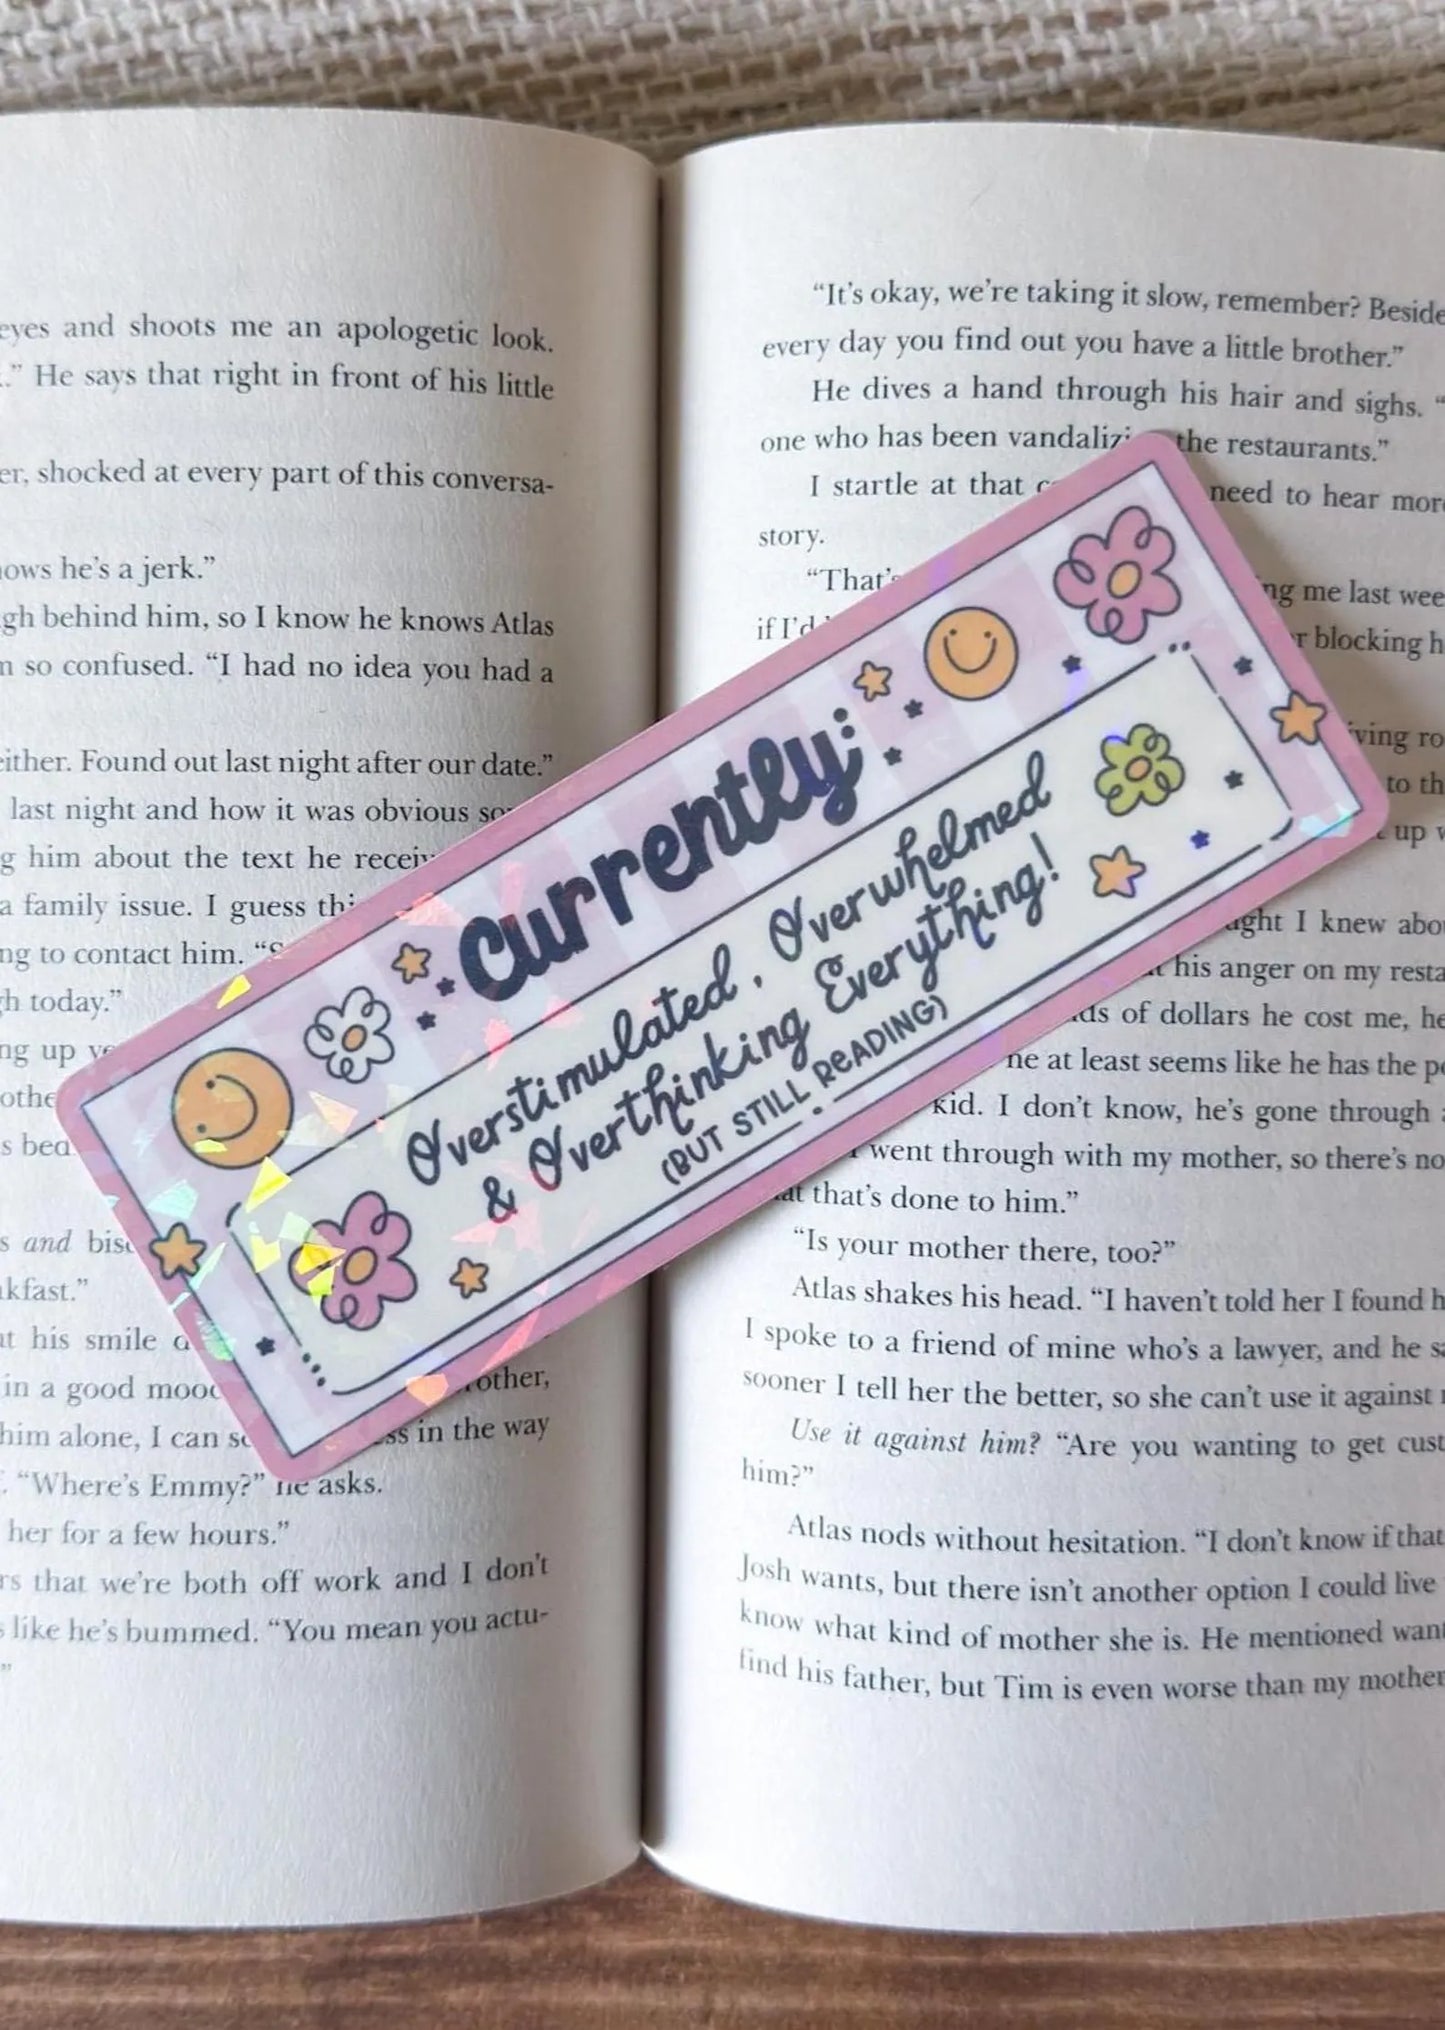 eyes and shoots me an apologetic look.
.” He says that right in front of his little
er, shocked at every part of this conversa-
ows he’s a jerk.”
gh behind him, so I know he knows Atlas
so confused. “I had no idea you had a
either. Found out last night after our date.”
last night and how it was obvious
g him about the text he
a family issue. I guess
ng to contact him.
h today.”
ng up
s bea
s and
kfast.”
his smile
in a good mood
other,
him alone, I can
in the way
“Where’s Emmy?” he asks.
her for a few hours.”
rs that we’re both off work and I don’t
like he’s bummed. “You mean you actu-
”
“It’s okay, we’re taking it slow, remember? Beside
every day you find out you have a little brother.”
He dives a hand through his hair and sighs. “
one who has been vandalizi the restaurants.”
I startle at that need to hear more
story.
“That’s
ng me last wee
if I’d
r blocking h
ving ro
to th
up
ght I knew abo
his anger on my resta
ds of dollars he cost me, he
ne at least seems like he has the p
kid. I don’t know, he’s gone through
went through with my mother, so there’s no
at that’s done to him.”
“Is your mother there, too?”
Atlas shakes his head. “I haven’t told her I found h
I spoke to a friend of mine who’s a lawyer, and he sa
sooner I tell her the better, so she can’t use it against
Use it against him? “Are you wanting to get cust
him?”
Atlas nods without hesitation. “I don’t know if that
Josh wants, but there isn’t another option I could live
know what kind of mother she is. He mentioned want
find his father, but Tim is even worse than my mother
Currently:
Overstimulated, Overwhelmed
& Overthinking Everything!
(BUT STILL READING)